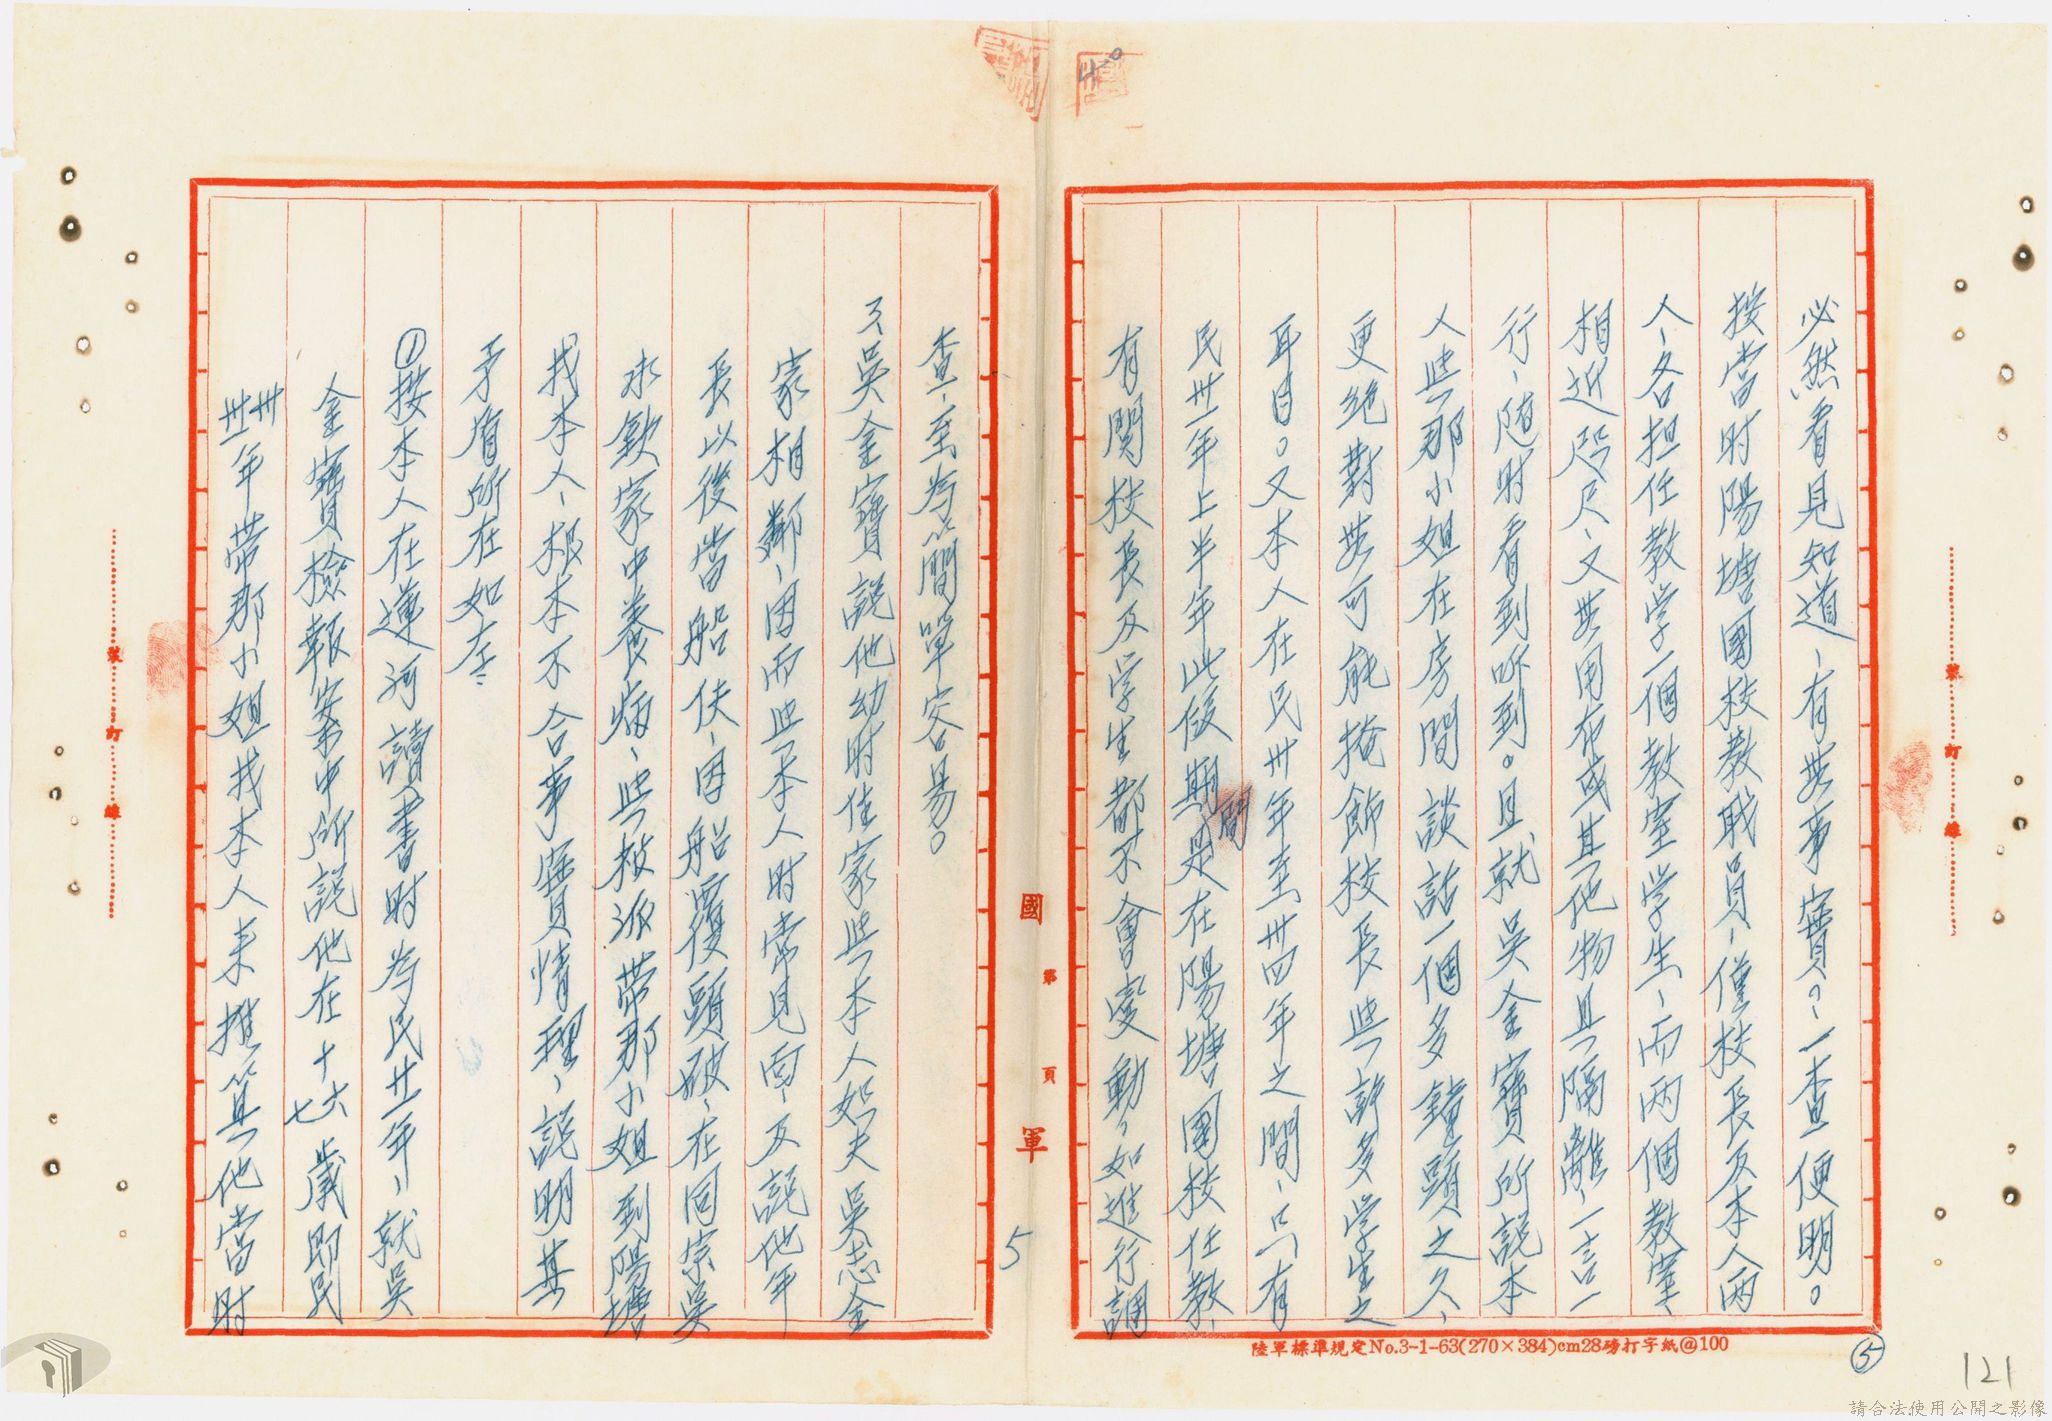 必然看見知道、有無事實。一查便明。
按當時陽塘國校教職員、僅校長及本人兩
人、各担任教学一個教室学生、而兩個教室
相近咫尺、又無用布或其他物具隔離、一言一
行、随時看到听到。且就吳金寶所說本
人與那小姐在房間談話一個多鐘頭之久、
更絶對無可能掩飾校長與許多学生之
耳目。又本人在民卅年至卅四年之間、只有
民卅一年上半年此段期間是在陽塘國校任教、
有関校長及学生都不會变動、如進行調
查、至為簡單容易。
又、吳金寶說他幼時住家與本人姐夫吳志金
家相鄰、因而與本人時常見面、及說他年
長以後當船伕、因船覆頭破、在同宗吳
水欽家中養病、與被派帶那小姐到陽塘
找本人、根本不合事實情理、說明其
矛盾所在如左：
①按本人在運河讀書時為民廿一年、就吳
金寶檢報案中所說他在十六七歲即民
卅卅一年帶那小姐找本人來推算他當時
國 軍
第 頁
裝 訂 線
裝 訂 線
5
陸軍標準規定No.3-1-63(270×384)cm28磅打字紙@100
⑤
121
請合法使用公開之影像